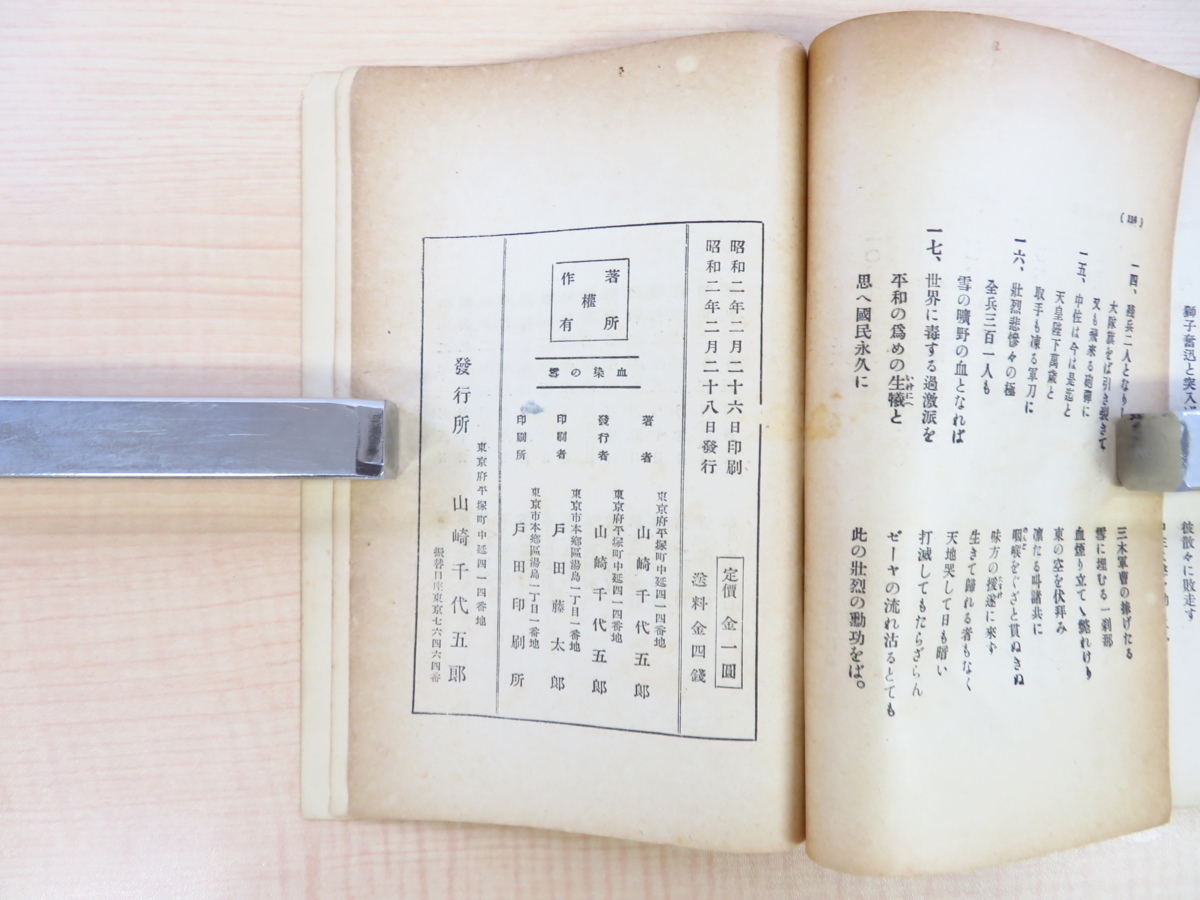 獅子奮迅と突入
彼散々に敗走す
一四、
三木軍曹の捧げたる
大隊旗をば引き裂きて
雪に埋むる一刹那
又も飛来る砲彈に
血煙り立てゝ斃れけり
一五、中佐は今は是迄と
東の空を伏拜み
天皇陛下萬歳と
凛たる叫諸共に
取手も凍る軍刀に
咽喉をぐざと貫ぬきぬ
一六、壯烈悲慘々の極
味方の援遂に來ず
全兵三百一人も
生きて歸れる者もなく
雪の曠野の血となれば
天地哭して日も暗い
一七、世界に毒する過激派を
打滅してもたらざらん
平和の爲めの生犧と
ゼーヤの流れ沽るとても
思へ國民永久に
此の壯烈の勳功をば。
昭和二年二月二十六日印刷
昭和二年二月二十八日發行
定價 金一圓
送料金四錢
著作權所有
血染の雪
著者
東京府平塚町中延四一四番地
山崎千代五郎
發行者
東京府平塚町中延四一四番地
山崎千代五郎
印刷者
東京市本郷區湯島一丁目一番地
戸田藤太郎
印刷所
東京市本郷區湯島一丁目一番地
戸田印刷所
發行所
東京府平塚町中延四一四番地
山崎千代五郎
振替口座東京七六四六四番